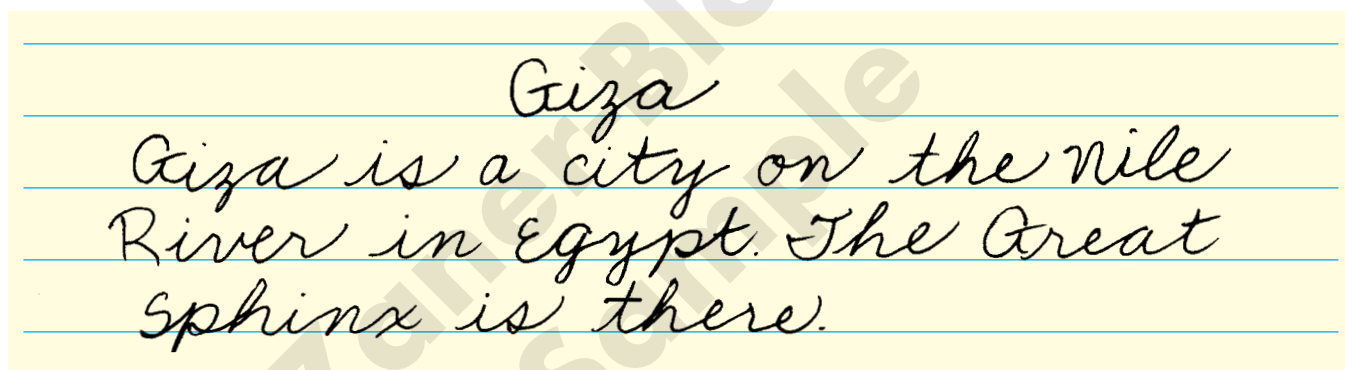 Giza
Giza is a city on the Nile
River in Egypt. The Great
Sphinx is there.
Zaner-Blo
Sample